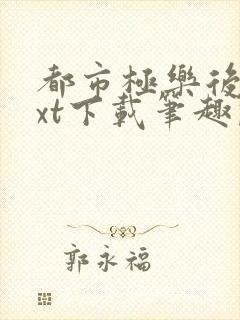 都市極樂後
xt下載筆趣
郭永福